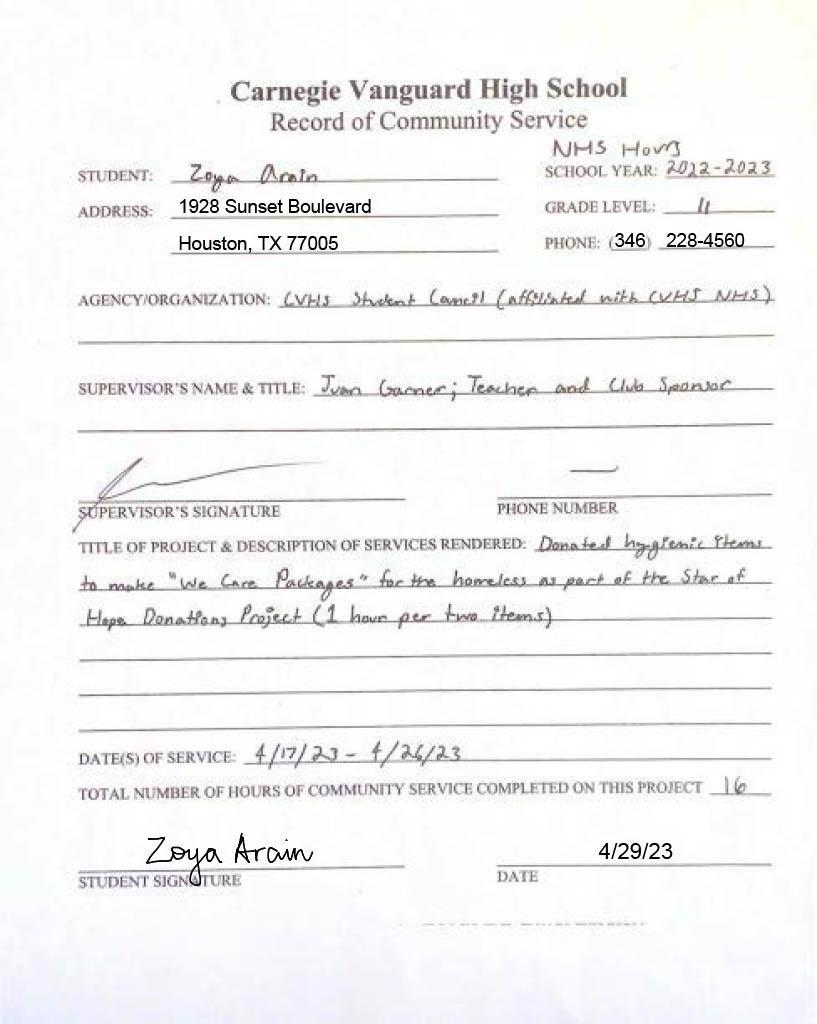 Carnegie Vanguard High School
Record of Community Service
NHS Hours
STUDENT: Zoya Arain
SCHOOL YEAR: 2022-2023
ADDRESS: 1928 Sunset Boulevard
GRADE LEVEL: 11
Houston, TX 77005
PHONE: (346) 228-4560
AGENCY/ORGANIZATION: CVHS Student Council (affiliated with CVHS NHS)
SUPERVISOR'S NAME & TITLE: Juan Garner; Teacher and Club Sponsor
SUPERVISOR'S SIGNATURE
—
PHONE NUMBER
TITLE OF PROJECT & DESCRIPTION OF SERVICES RENDERED: Donated hygienic items
to make "We Care Packages" for the homeless as part of the Star of
Hope Donations Project (1 hour per two items)
DATE(S) OF SERVICE: 4/17/23 - 4/26/23
TOTAL NUMBER OF HOURS OF COMMUNITY SERVICE COMPLETED ON THIS PROJECT 16
Zoya Arain
4/29/23
STUDENT SIGNATURE
DATE